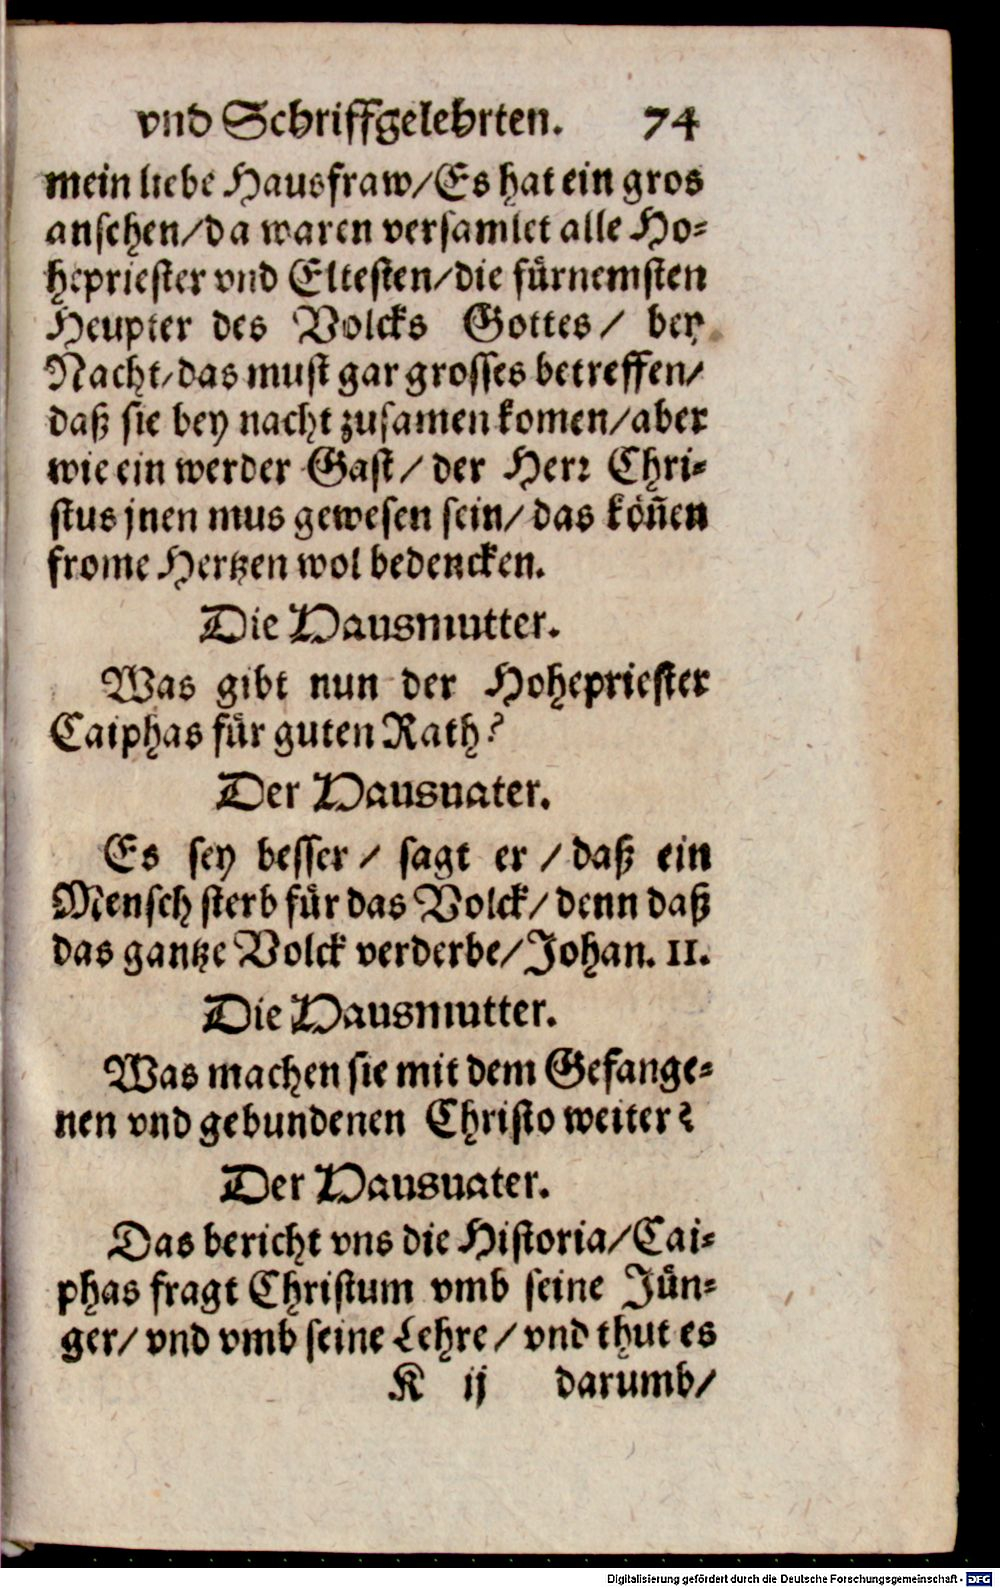 vnd Schriffgelehrten. 74
mein liebe Hausfraw/Es hat ein gros
ansehen/da waren versamlet alle Ho-
hepriester vnd Eltesten/die fürnemsten
Heupter des Volcks Gottes/ bey
Nacht/das must gar grosses betreffen/
daß sie bey nacht zusamen komen/aber
wie ein werder Gast/ der Herr Chri-
stus jnen mus gewesen sein/das köñen
frome Hertzen wol bedencken.
Die Hausmutter.
Was gibt nun der Hohepriester
Caiphas für guten Rath?
Der Hausuater.
Es sey besser/ sagt er/daß ein
Mensch sterb für das Volck/denn daß
das gantze Volck verderbe/Johan. 11.
Die Hausmutter.
Was machen sie mit dem Gefange-
nen vnd gebundenen Christo weiter?
Der Hausuater.
Das bericht vns die Historia/Cai-
phas fragt Christum vmb seine Jün-
ger/vnd vmb seine Lehre/vnd thut es
K ij darumb/
Digitalisierung gefördert durch die Deutsche Forschungsgemeinschaft - DFG